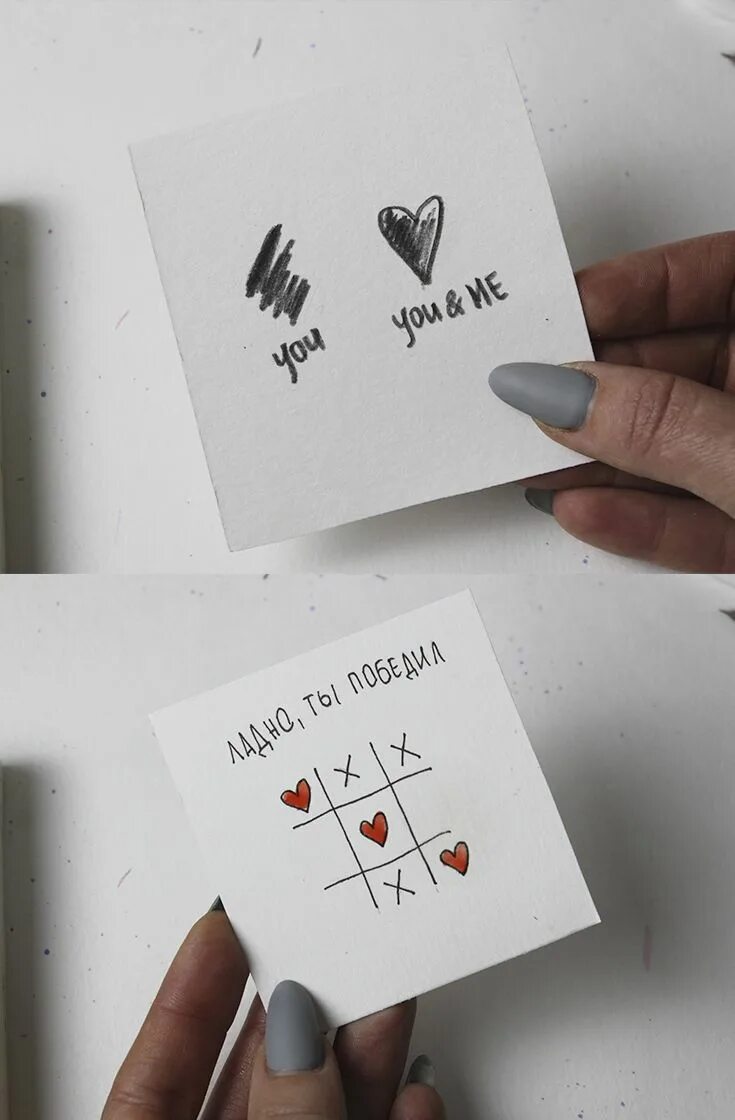 you
you & ME
ЛАДНО, ТЫ ПОБЕДИЛ
X X
X